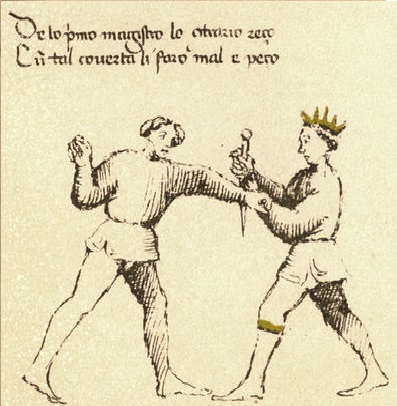 De lo pmo magistro lo otrario reço
Cũ tal coverta li farò mal e peço